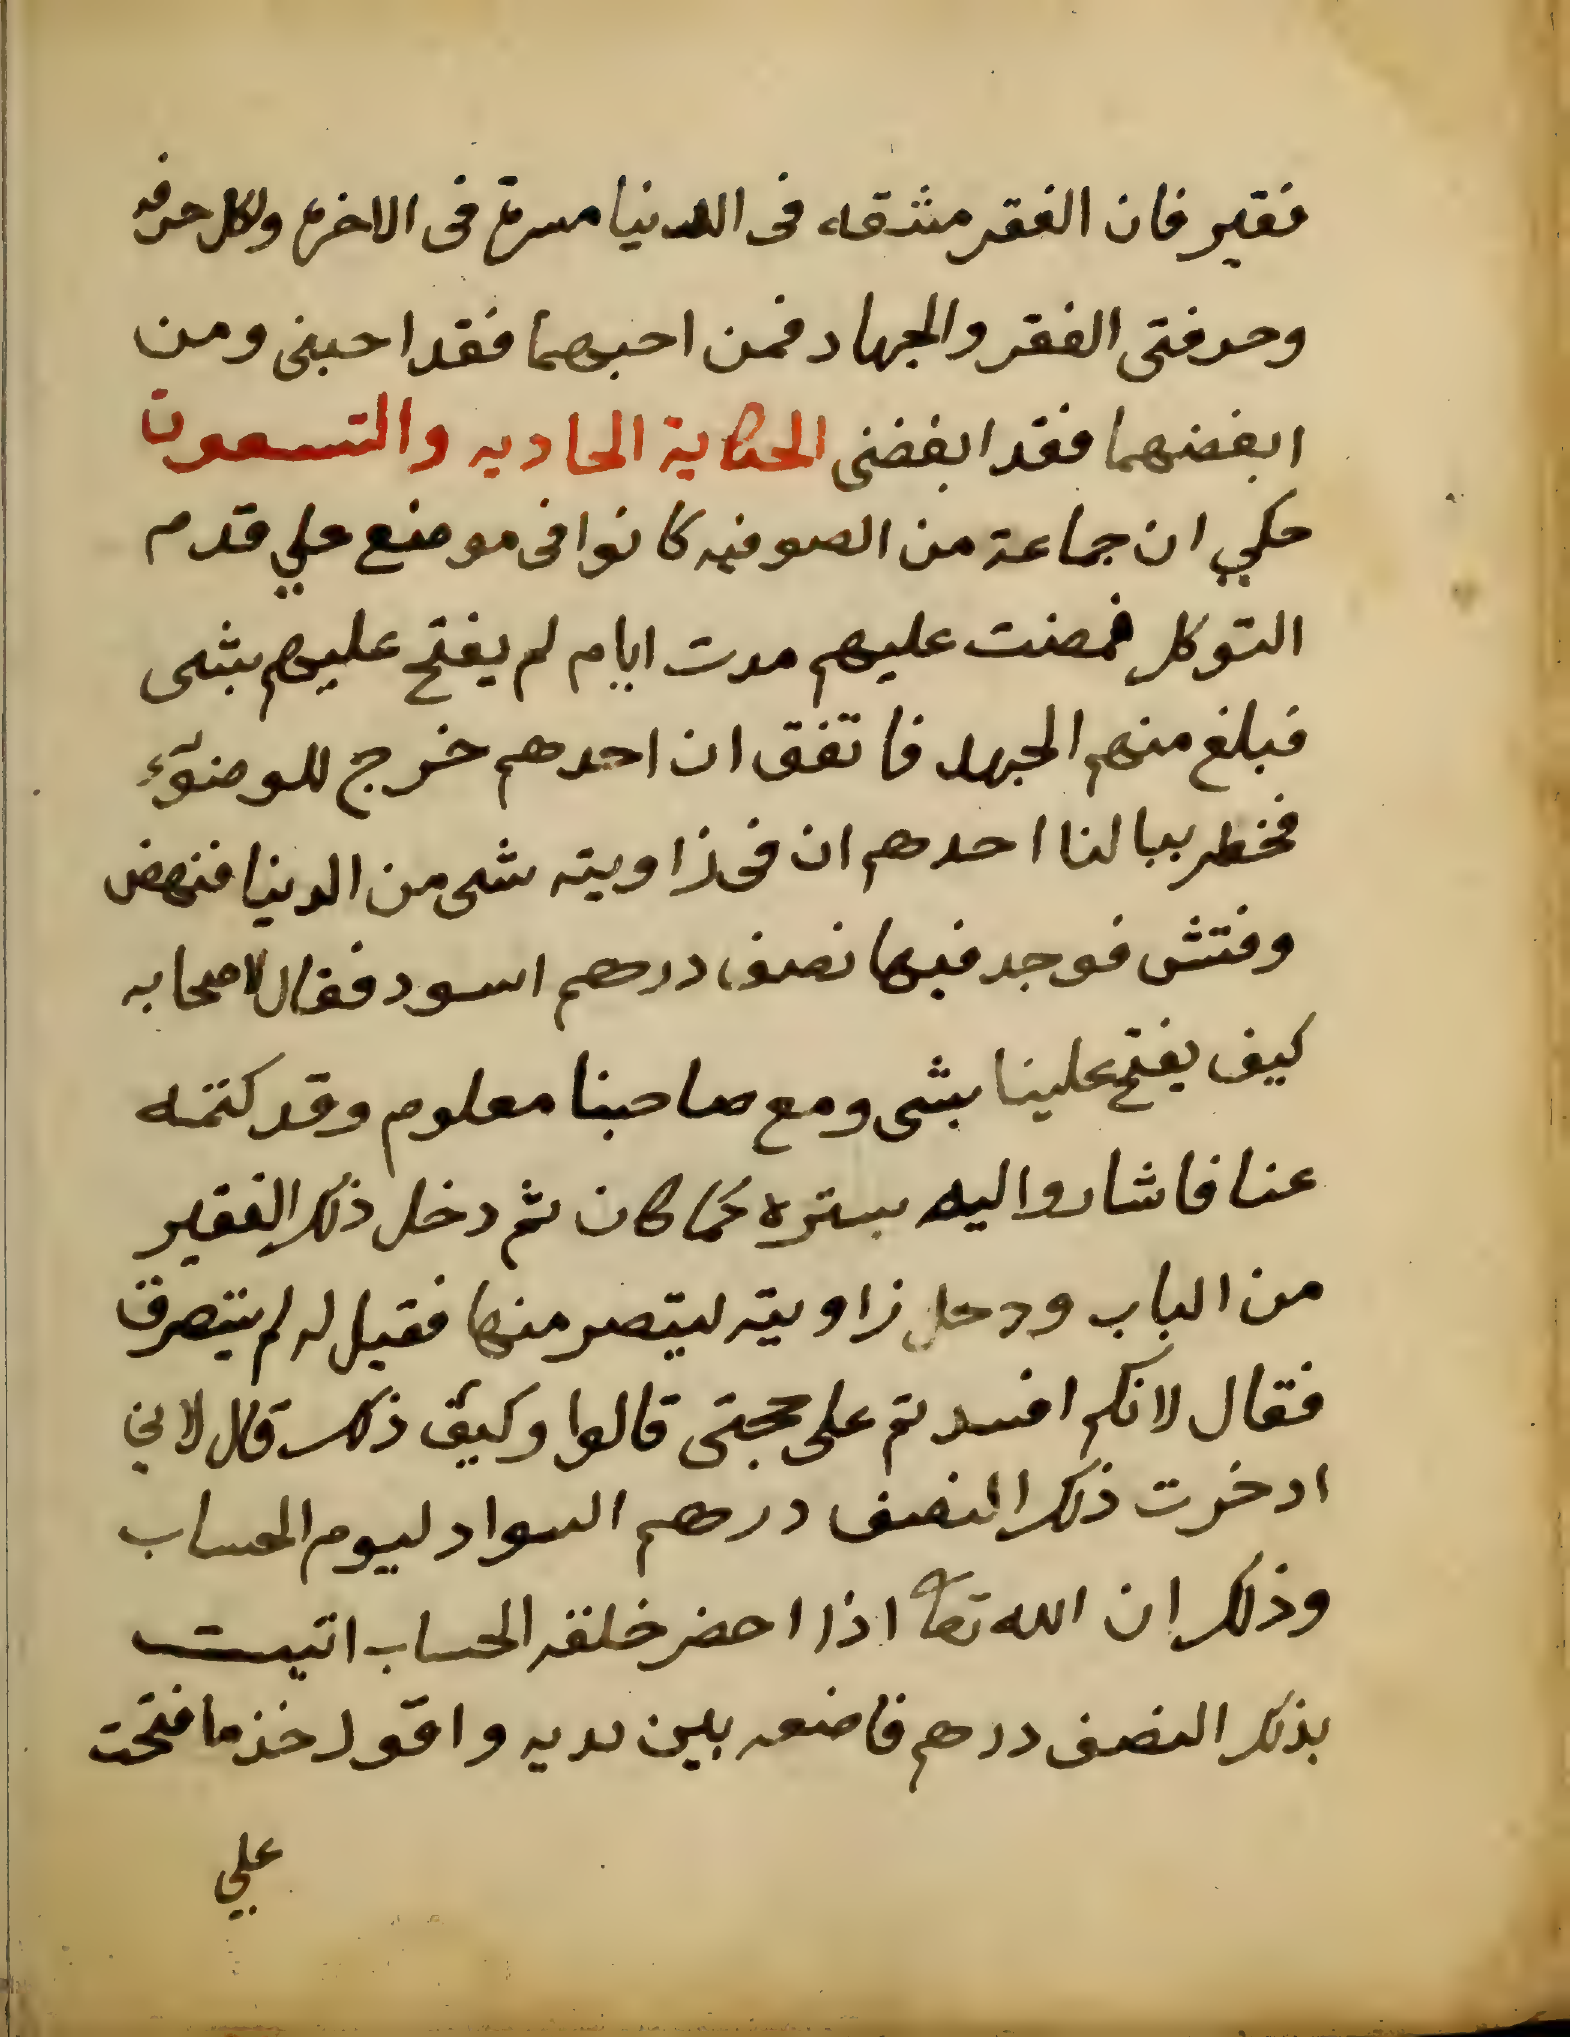 فقير فان الفقر مشقه فى الدنيا مسرة فى الاخرة ولكل حرفه
وحرفتى الفقر والجهاد فمن احبهما فقد احبنى ومن
ابغضهما فقد ابغضنى الحكاية الحاديه والتسعون
حكي ان جماعة من الصوفيه كانوا فى موضع علي قدم
التوكل فمضت عليهم مدت ايام لم يفتح عليهم بشى
فبلغ منهم الجهد فاتفق ان احدهم خرج للوضوء
فخطر ببالنا احدهم ان فى زاويته شى من الدنيا فنهض
وفتش فوجد فيها نصف درهم اسود فقال لاصحابه
كيف يفتح علينا بشى ومع صاحبنا معلوم وقد كتمه
عنا فاشاروا اليه بستره كما كان ثم دخل ذلك الفقير
من الباب ودخل زاويته ليتصر منها فقيل له لم يتصرف
فقال لانكم افسدتم على حجتى قالوا وكيف ذلك قال لاني
ادخرت ذلك النصف درهم السواد ليوم الحساب
وذلك ان الله تعا اذا احضر خلقه الحساب اتيت
بذلك النصف درهم فاضعه بين يديه واقول خذ ما فتحت
علي